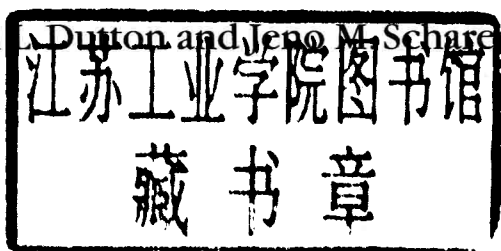 L. Dutton and Jeno M. Schare
江苏工业学院图书馆
藏书章